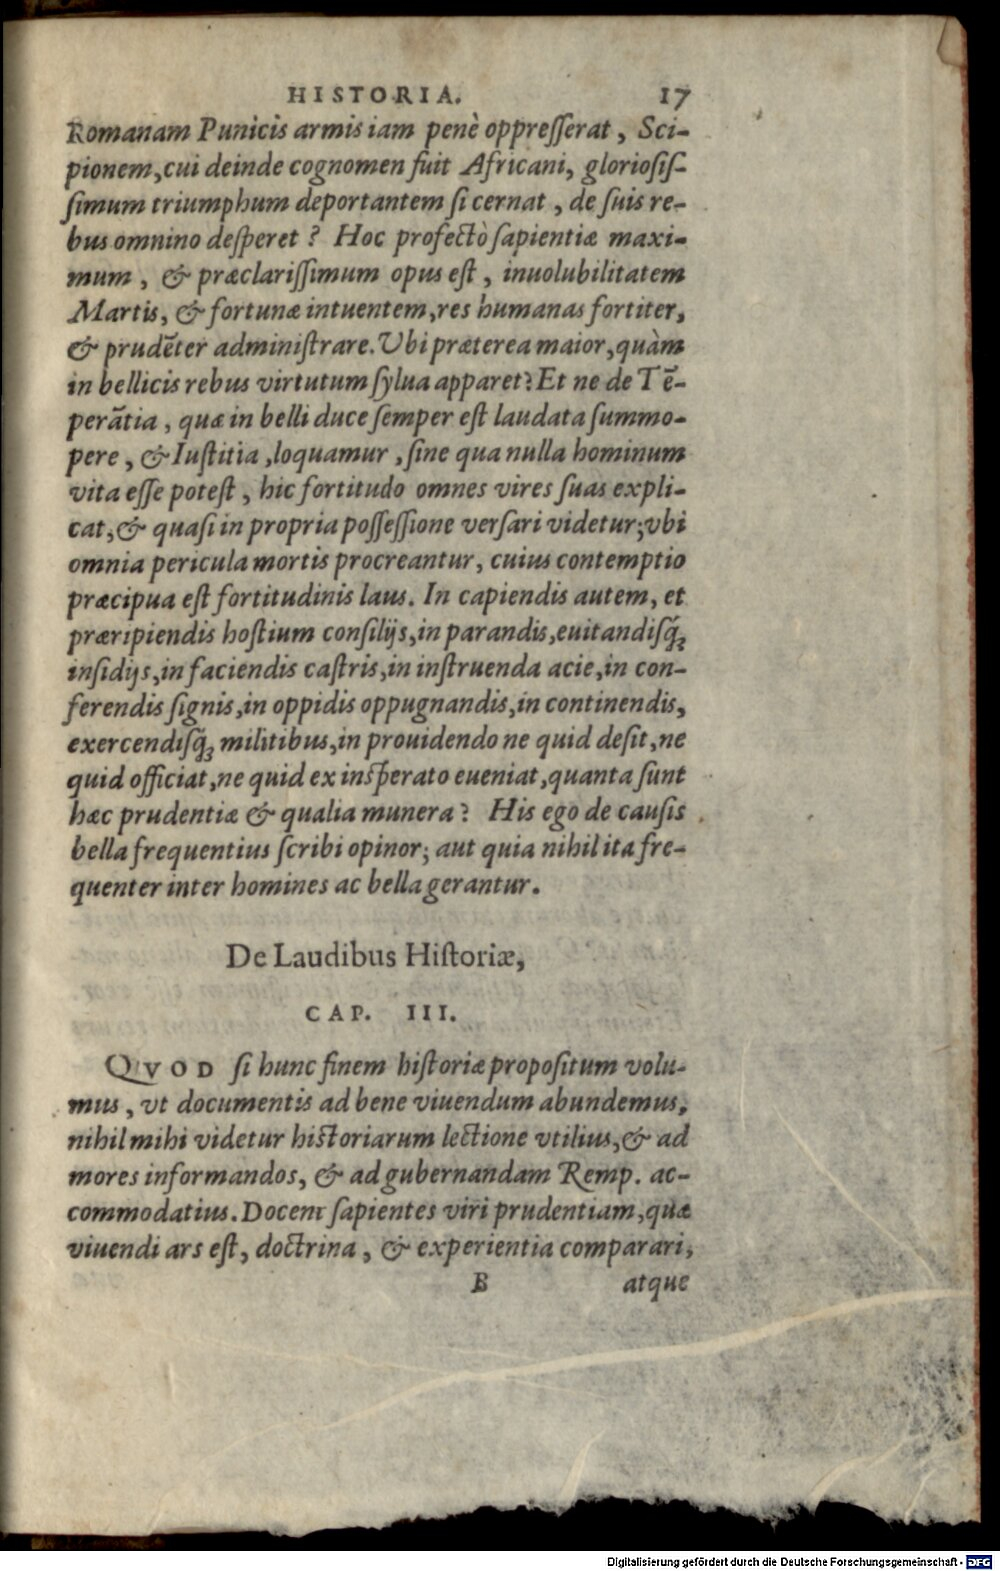 HISTORIA. 17
Romanam Punicis armis iam penè oppreſſerat, Sci-
pionem, cui deinde cognomen fuit Africani, glorioſiſ-
ſimum triumphum deportantem ſi cernat, de ſuis re-
bus omnino deſperet? Hoc profectò ſapientiæ maxi-
mum, & præclariſſimum opus eſt, inuolubilitatem
Martis, & fortunæ intuentem, res humanas fortiter,
& prudẽter adminiſtrare. Vbi præterea maior, quàm
in bellicis rebus virtutum ſylua apparet? Et ne de Tẽ-
perãtia, quæ in belli duce ſemper eſt laudata ſummo-
pere, & Iuſtitia, loquamur, ſine qua nulla hominum
vita eſſe poteſt, hic fortitudo omnes vires ſuas expli-
cat, & quaſi in propria poſſeſſione verſari videtur; vbi
omnia pericula mortis procreantur, cuius contemptio
præcipua eſt fortitudinis laus. In capiendis autem, et
præripiendis hoſtium conſilijs, in parandis, euitandiſq́;
inſidijs, in faciendis caſtris, in inſtruenda acie, in con-
ferendis ſignis, in oppidis oppugnandis, in continendis,
exercendiſq́; militibus, in prouidendo ne quid deſit, ne
quid officiat, ne quid ex inſperato eueniat, quanta ſunt
hæc prudentiæ & qualia munera? His ego de cauſis
bella frequentius ſcribi opinor; aut quia nihil ita fre-
quenter inter homines ac bella gerantur.
De Laudibus Hiſtoriæ,
CAP. III.
QVOD ſi hunc finem hiſtoriæ propoſitum volu-
mus, vt documentis ad bene viuendum abundemus,
nihil mihi videtur hiſtoriarum lectione vtilius, & ad
mores informandos, & ad gubernandam Remp. ac-
commodatius. Docent ſapientes viri prudentiam, quæ
viuendi ars eſt, doctrina, & experientia comparari,
B atque
Digitalisierung gefördert durch die Deutsche Forschungsgemeinschaft - DFG